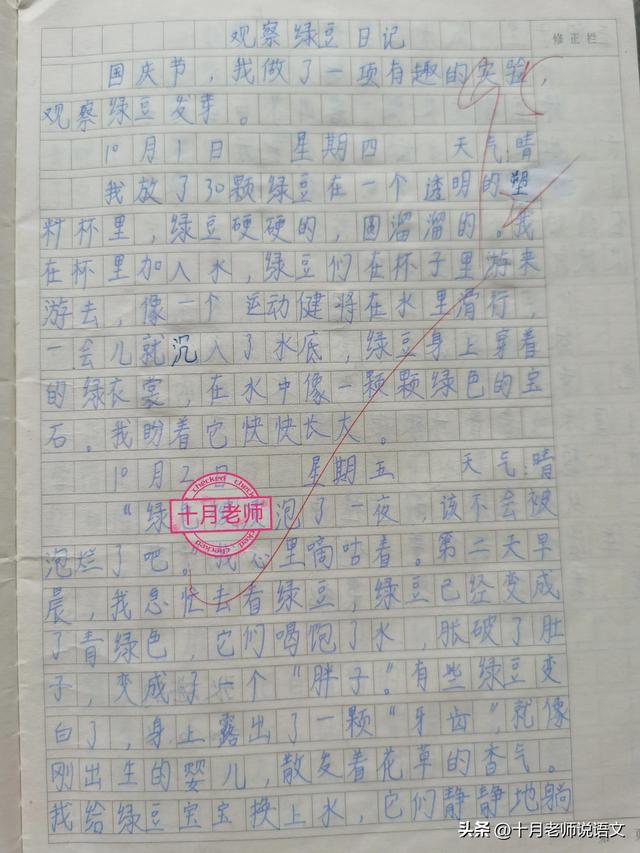 观察绿豆日记
修正栏
国庆节，我做了一项有趣的实验，
观察绿豆发芽。
10月1日 星期四 天气晴
我放了30颗绿豆在一个透明的塑
料杯里，绿豆硬硬的，圆溜溜的。我
在杯里加入水，绿豆们在杯子里游来
游去，像一个运动健将在水里滑行，
一会儿就沉入了水底，绿豆身上穿着
的绿衣裳，在水中像一颗颗绿色的宝
石。我盼着它快快长大。
10月2日 星期五 天气:晴
checked
十月老师
checked
"绿豆 泡了一夜，该不会被
泡烂了吧。"我心里嘀咕着。第二天早
晨，我急忙去看绿豆，绿豆已经变成
了青绿色，它们喝饱了水，胀破了肚
子，变成了一个"胖子"。有些绿豆变
白了，身上露出了一颗"牙齿"，就像
刚出生的婴儿，散发着花草的香气。
我给绿豆宝宝换上水，它们静静地躺
头条 @十月老师说语文